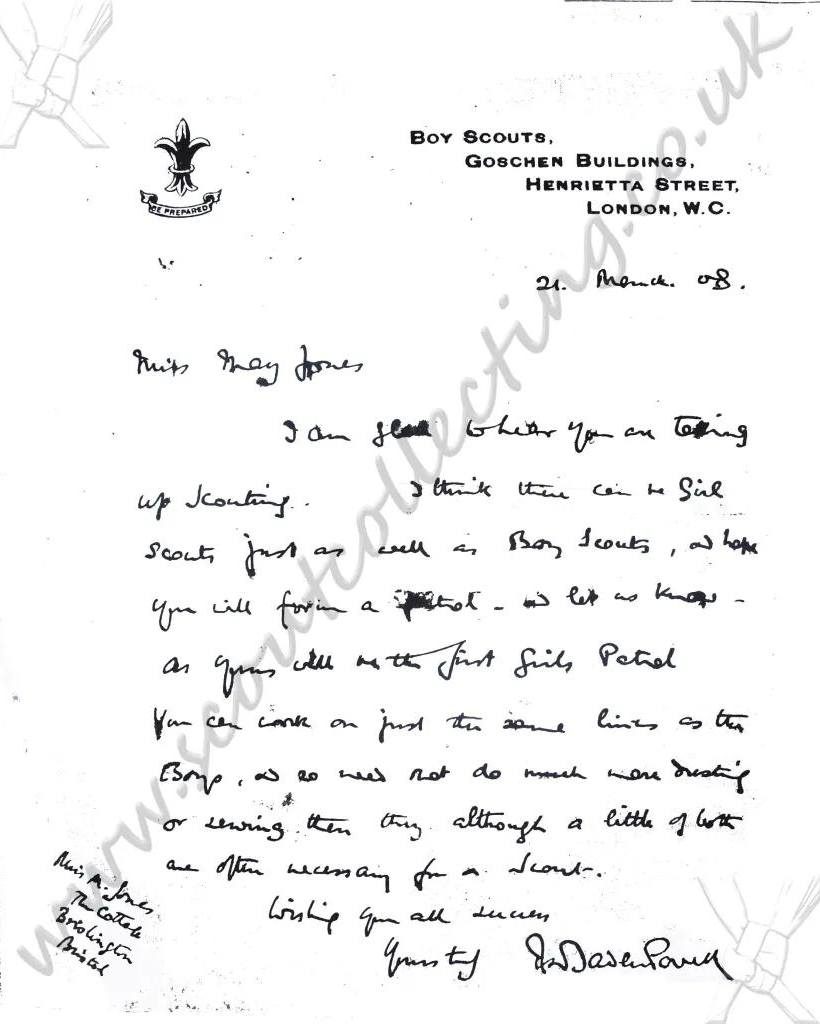 BE PREPARED
BOY SCOUTS,
GOSCHEN BUILDINGS,
HENRIETTA STREET,
LONDON, W.C.
21. March. 08.
Miss May Jones
I am glad to hear you are taking
up Scouting. I think there can be Girl
Scouts just as well as Boy Scouts, & hope
you will form a patrol - & let us know -
as yours will be the first Girls Patrol
You can work on just the same lines as the
Boys, & so need not do much more dusting
or sewing than they although a little of both
are often necessary for a Scout.
Wishing you all success
Yours try
RS Baden Powell
Miss M. Jones
The Cottage
Brislington
Bristol
www.scoutcollecting.co.uk